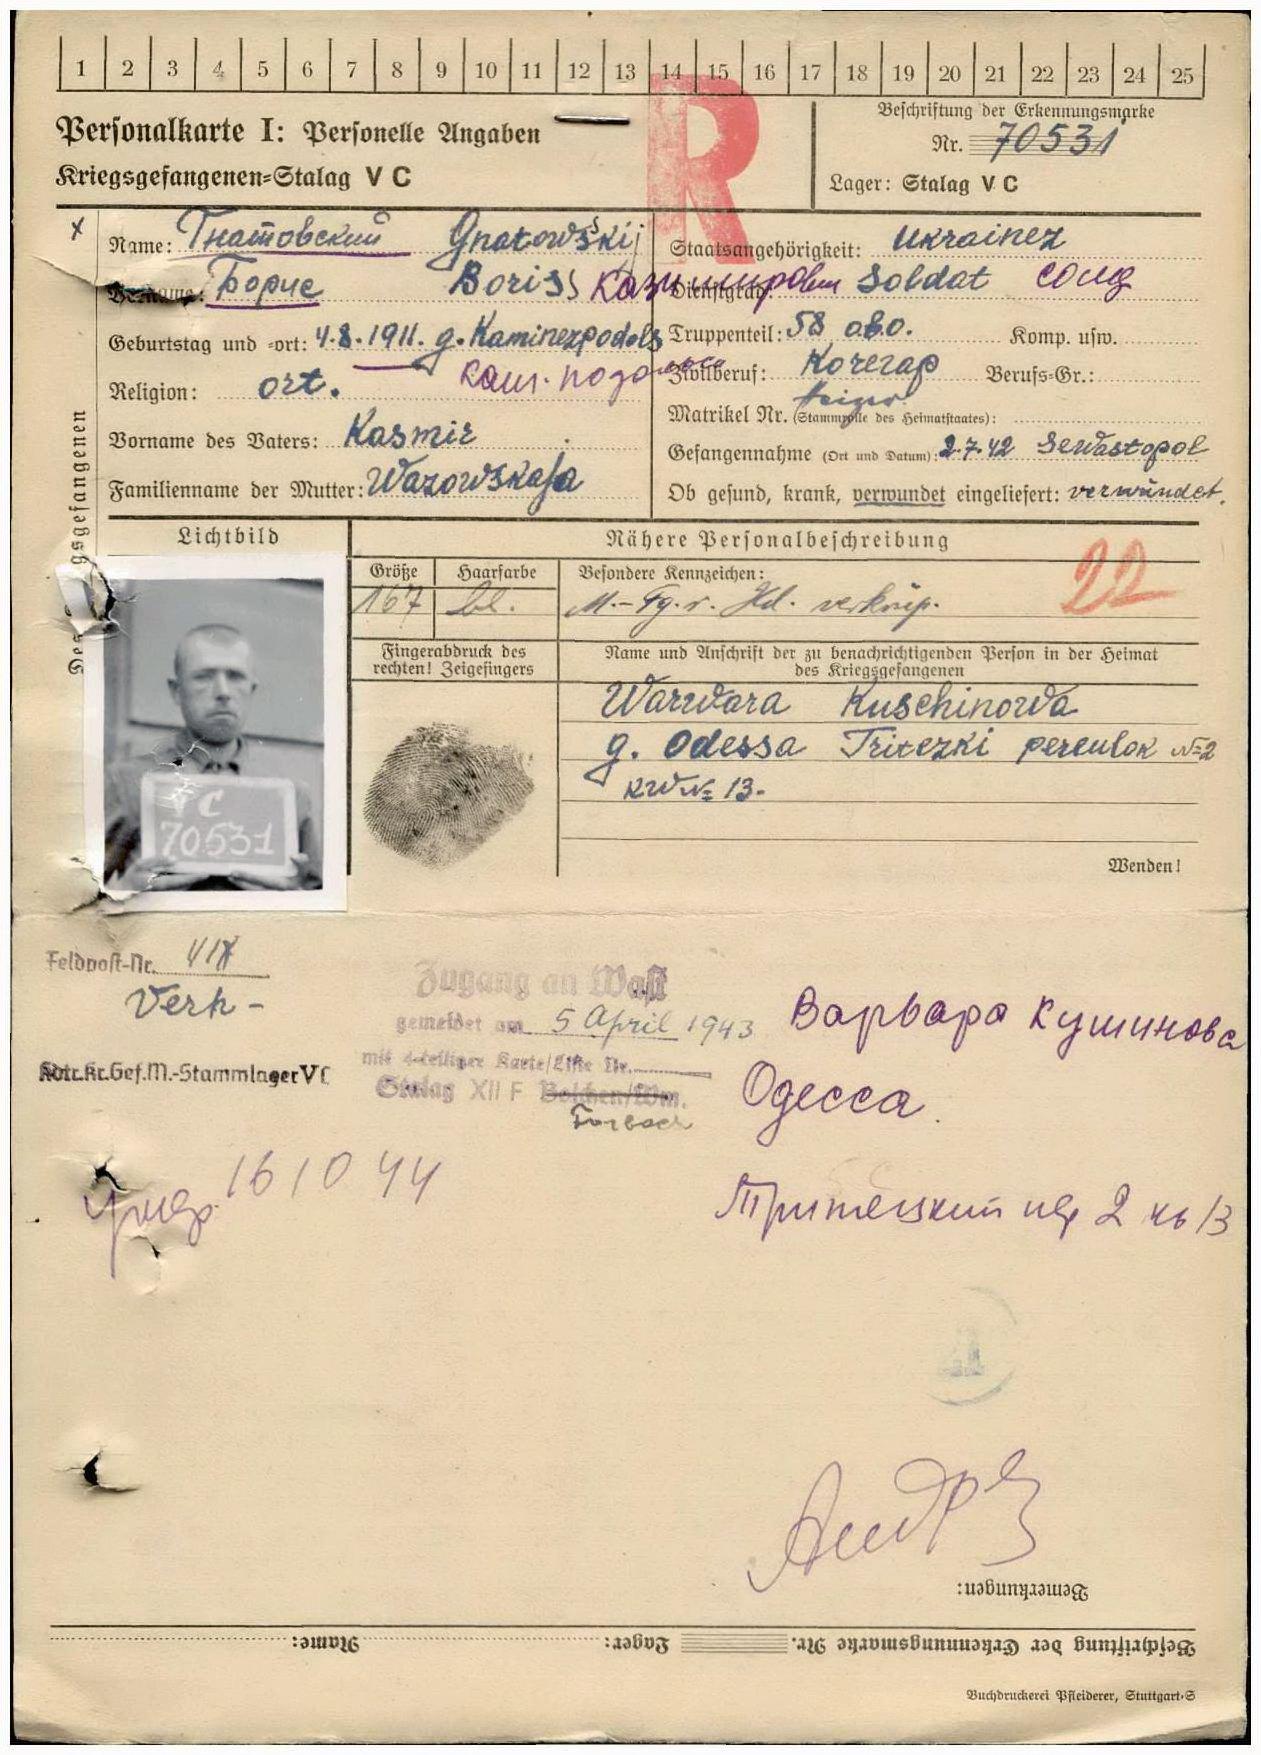 1 2 3 4 5 6 7 8 9 10 11 12 13 14 15 16 17 18 19 20 21 22 23 24 25
R
Personalkarte I: Personelle Angaben
Kriegsgefangenen-Stalag V C
Beschriftung der Erkennungsmarke
Nr. 70531
Lager: Stalag V C
x
Name: Гнатовский Gnatowskij
Борис Boriss Казимирович
Geburtstag und -ort: 4.8.1911. g. Kaminezpodols
Religion: ort. Кам. подольск
Vorname des Vaters: Kasmir
Familienname der Mutter: Wazowskaja
Staatsangehörigkeit: Ukrainez
Dienstgrad: Soldat солд
Truppenteil: 58 о.б.о. Komp. usw.
Zivilberuf: Berufs-Gr.:
Matrikel Nr. (Stammrolle des Heimatstaates):
Gefangennahme (Ort und Datum): 2.7.42 Sewastopol
Ob gesund, krank, verwundet eingeliefert: verwundet.
gsgefangenen
Lichtbild
Nähere Personalbeschreibung
Größe Haarfarbe Besondere Kennzeichen:
167 bl. M.-Fg. r. Hd. verkrüp.
22
Fingerabdruck des rechten! Zeigefingers
Name und Anschrift der zu benachrichtigenden Person in der Heimat
des Kriegsgefangenen
Warwara Kuschinowa
g. Odessa Tritezki pereulok №2
kw № 13.
V C
70531
Wenden!
Feldpost-Nr.
Verh-
Kdtr.Kr.Gef.M.-Stammlager V C
Zugang an Wast
gemeldet am 5 April 1943
mit 4-teiliger Karte/Liste Nr.
Stalag XII F Bolchen/Wm.
Forbach
Варвара Кушинова
Одесса.
Тритецкий пер 2 кв 13
умер. 16 10 44
Bemerkungen:
Beschriftung der Erkennungsmarke Nr. Lager: Name:
Buchdruckerei Pfleiderer, Stuttgart-S